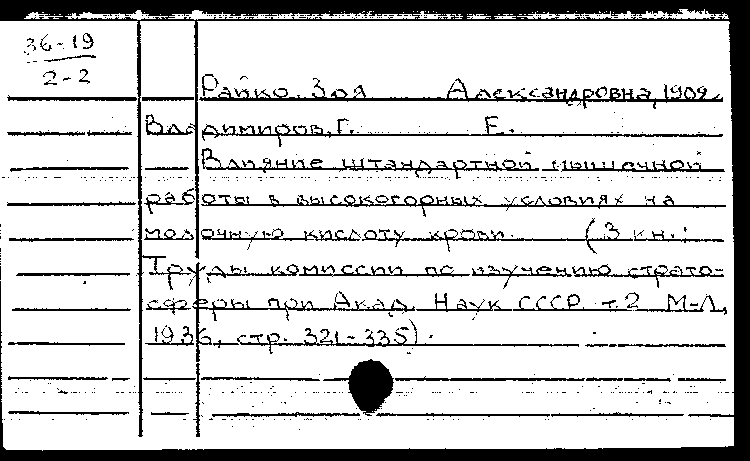 36-19
2-2
Райко Зоя Александровна, 1909
Владимиров, Г. Е.
Влияние штандартной мышечной
работы в высокогорных условиях на
молочную кислоту крови. (В кн.:
Труды комиссии по изучению страто-
сферы при Акад. Наук СССР т.2 М-Л,
1936, стр. 321-335).